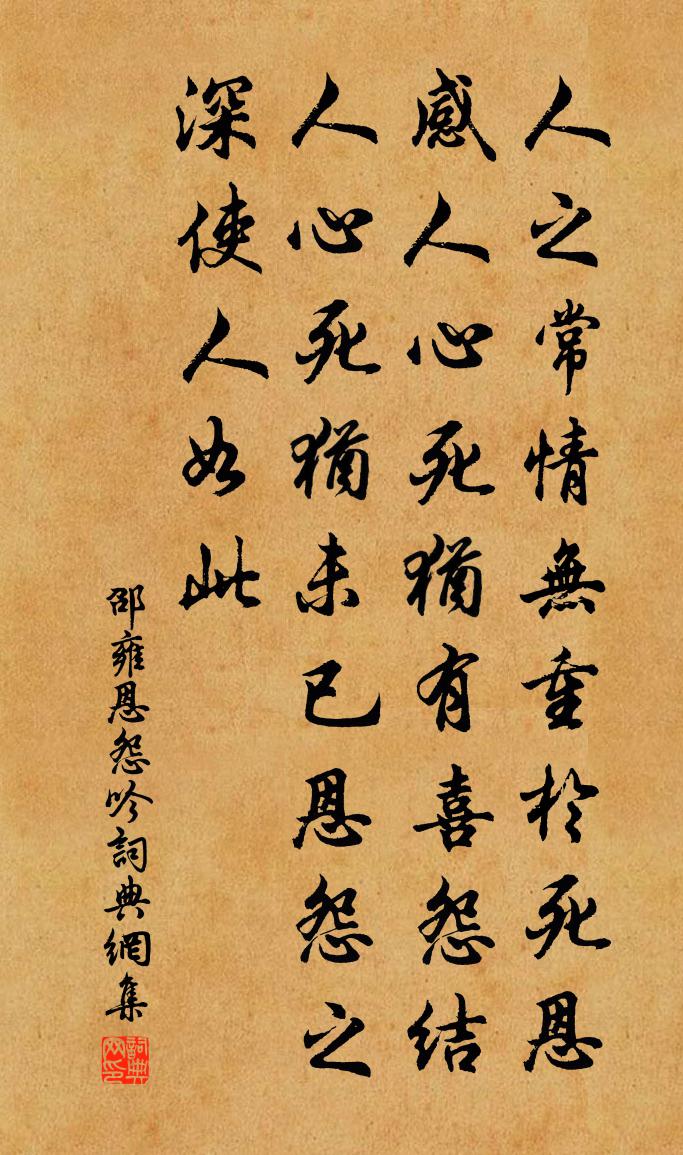 人之常情無重於死恩
感人心死猶有喜怨結
人心死猶未已恩怨之
深使人如此
邵雍恩怨吟詞典網集
詞典网印